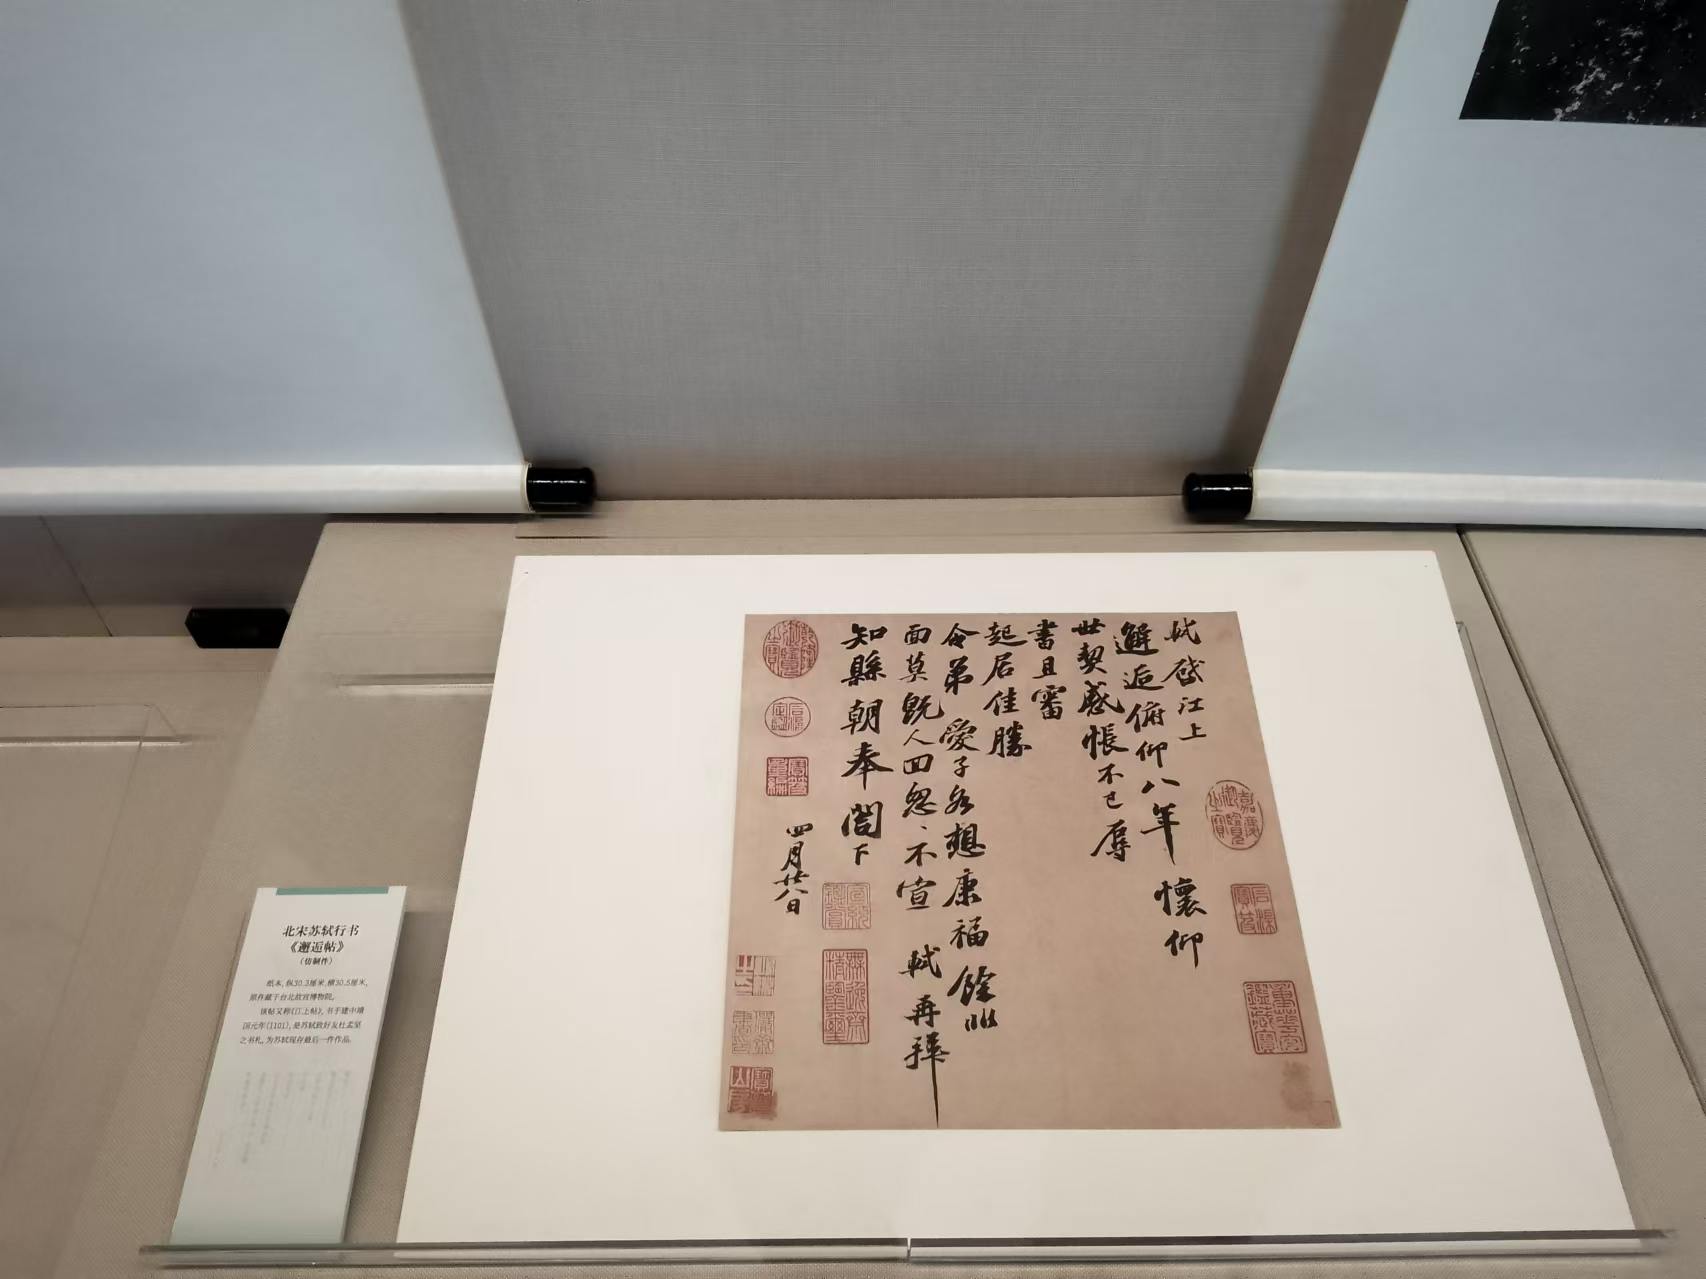 北宋苏轼行书
《邂逅帖》
(仿制件)
纸本,纵30.3厘米,横30.5厘米,
原件藏于台北故宫博物院。
该帖又称《江上帖》,书于建中靖
国元年(1101),是苏轼致好友杜孟坚
之书札,为苏轼现存最后一件作品。
軾啓江上
邂逅俯仰八年懷仰
世契感悵不已辱
書且審
起居佳勝
令弟愛子各想康福餘非
面莫既人回怱、不宣軾再拜
知縣朝奉閤下
四月廿八日
嘉慶御覽之寶
石渠寶笈
無逸齋精鑒璽
宜子孫